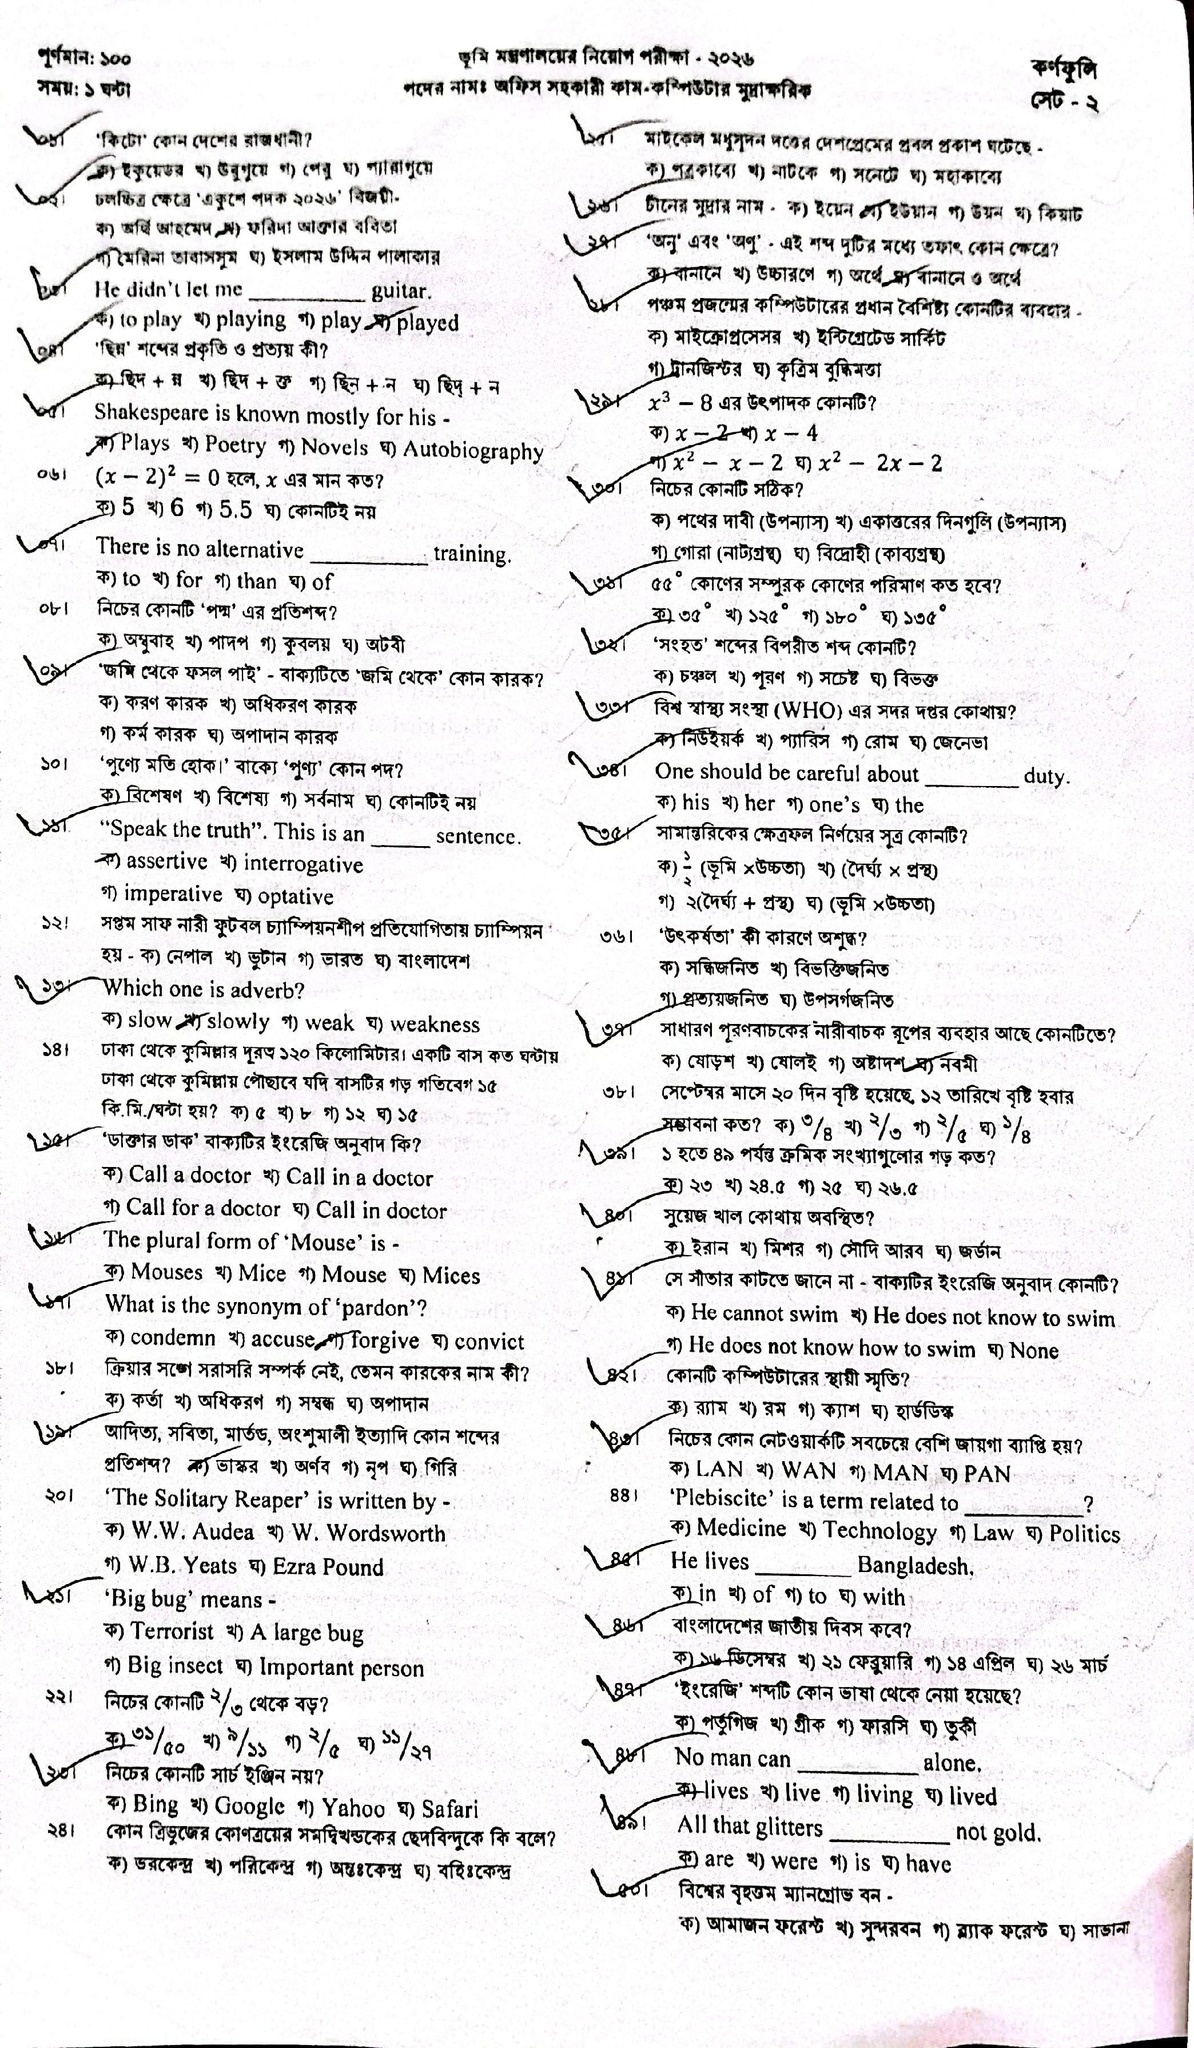 পূর্ণমান: ১০০
ভূমি মন্ত্রণালয়ের নিয়োগ পরীক্ষা - ২০২৬
সময়: ১ ঘন্টা
পদের নামঃ অফিস সহকারী কাম-কম্পিউটার মুদ্রাক্ষরিক
কর্ণফুলি
সেট - ২
০১। 'কিটো' কোন দেশের রাজধানী?
ক) ইকুয়েডর খ) উরুগুয়ে গ) পেরু ঘ) প্যারাগুয়ে
০২। চলচ্চিত্র ক্ষেত্রে 'একুশে পদক ২০২৬' বিজয়ী-
ক) অর্থি আহমেদ খ) ফরিদা আক্তার ববিতা
গ) মৈরিনা তাবাসসুম ঘ) ইসলাম উদ্দিন পালাকার
০৩। He didn't let me __________ guitar.
ক) to play খ) playing গ) play ঘ) played
০৪। 'ছিন্ন' শব্দের প্রকৃতি ও প্রত্যয় কী?
ক) ছিদ + ন্ন খ) ছিদ + ক্ত গ) ছিন + ন ঘ) ছিদ্ + ন
০৫। Shakespeare is known mostly for his -
ক) Plays খ) Poetry গ) Novels ঘ) Autobiography
০৬। (x − 2)² = 0 হলে, x এর মান কত?
ক) 5 খ) 6 গ) 5.5 ঘ) কোনটিই নয়
০৭। There is no alternative __________ training.
ক) to খ) for গ) than ঘ) of
০৮। নিচের কোনটি 'পদ্ম' এর প্রতিশব্দ?
ক) অম্বুবাহ খ) পাদপ গ) কুবলয় ঘ) অটবী
০৯। 'জমি থেকে ফসল পাই' - বাক্যটিতে 'জমি থেকে' কোন কারক?
ক) করণ কারক খ) অধিকরণ কারক
গ) কর্ম কারক ঘ) অপাদান কারক
১০। 'পুণ্যে মতি হোক।' বাক্যে 'পুণ্য' কোন পদ?
ক) বিশেষণ খ) বিশেষ্য গ) সর্বনাম ঘ) কোনটিই নয়
১১। "Speak the truth". This is an _____ sentence.
ক) assertive খ) interrogative
গ) imperative ঘ) optative
১২। সপ্তম সাফ নারী ফুটবল চ্যাম্পিয়নশীপ প্রতিযোগিতায় চ্যাম্পিয়ন
হয় - ক) নেপাল খ) ভুটান গ) ভারত ঘ) বাংলাদেশ
১৩। Which one is adverb?
ক) slow খ) slowly গ) weak ঘ) weakness
১৪। ঢাকা থেকে কুমিল্লার দূরত্ব ১২০ কিলোমিটার। একটি বাস কত ঘন্টায়
ঢাকা থেকে কুমিল্লায় পৌছাবে যদি বাসটির গড় গতিবেগ ১৫
কি.মি./ঘন্টা হয়? ক) ৫ খ) ৮ গ) ১২ ঘ) ১৫
১৫। 'ডাক্তার ডাক' বাক্যটির ইংরেজি অনুবাদ কি?
ক) Call a doctor খ) Call in a doctor
গ) Call for a doctor ঘ) Call in doctor
১৬। The plural form of 'Mouse' is -
ক) Mouses খ) Mice গ) Mouse ঘ) Mices
১৭। What is the synonym of 'pardon'?
ক) condemn খ) accuse গ) forgive ঘ) convict
১৮। ক্রিয়ার সঙ্গে সরাসরি সম্পর্ক নেই, তেমন কারকের নাম কী?
ক) কর্তা খ) অধিকরণ গ) সম্বন্ধ ঘ) অপাদান
১৯। আদিত্য, সবিতা, মার্তন্ড, অংশুমালী ইত্যাদি কোন শব্দের
প্রতিশব্দ? ক) ভাস্কর খ) অর্ণব গ) নৃপ ঘ) গিরি
২০। 'The Solitary Reaper' is written by -
ক) W.W. Audea খ) W. Wordsworth
গ) W.B. Yeats ঘ) Ezra Pound
২১। 'Big bug' means -
ক) Terrorist খ) A large bug
গ) Big insect ঘ) Important person
২২। নিচের কোনটি ২/৩ থেকে বড়?
ক) ৩১/৫০ খ) ৯/১১ গ) ২/৫ ঘ) ১১/২৭
২৩। নিচের কোনটি সার্চ ইঞ্জিন নয়?
ক) Bing খ) Google গ) Yahoo ঘ) Safari
২৪। কোন ত্রিভুজের কোণত্রয়ের সমদ্বিখন্ডকের ছেদবিন্দুকে কি বলে?
ক) ভরকেন্দ্র খ) পরিকেন্দ্র গ) অন্তঃকেন্দ্র ঘ) বহিঃকেন্দ্র
২৫। মাইকেল মধুসূদন দত্তের দেশপ্রেমের প্রবল প্রকাশ ঘটেছে -
ক) পত্রকাব্যে খ) নাটকে গ) সনেটে ঘ) মহাকাব্যে
২৬। চীনের মুদ্রার নাম - ক) ইয়েন খ) ইউয়ান গ) উয়ন ঘ) কিয়াট
২৭। 'অনু' এবং 'অণু' - এই শব্দ দুটির মধ্যে তফাৎ কোন ক্ষেত্রে?
ক) বানানে খ) উচ্চারণে গ) অর্থে ঘ) বানানে ও অর্থে
২৮। পঞ্চম প্রজন্মের কম্পিউটারের প্রধান বৈশিষ্ট্য কোনটির ব্যবহার -
ক) মাইক্রোপ্রসেসর খ) ইন্টিগ্রেটেড সার্কিট
গ) ট্রানজিস্টর ঘ) কৃত্রিম বুদ্ধিমত্তা
২৯। x³ − 8 এর উৎপাদক কোনটি?
ক) x − 2 খ) x − 4
গ) x² − x − 2 ঘ) x² − 2x − 2
৩০। নিচের কোনটি সঠিক?
ক) পথের দাবী (উপন্যাস) খ) একাত্তরের দিনগুলি (উপন্যাস)
গ) গোরা (নাট্যগ্রন্থ) ঘ) বিদ্রোহী (কাব্যগ্রন্থ)
৩১। ৫৫° কোণের সম্পুরক কোণের পরিমাণ কত হবে?
ক) ৩৫° খ) ১২৫° গ) ১৮০° ঘ) ১৩৫°
৩২। 'সংহত' শব্দের বিপরীত শব্দ কোনটি?
ক) চঞ্চল খ) পূরণ গ) সচেষ্ট ঘ) বিভক্ত
৩৩। বিশ্ব স্বাস্থ্য সংস্থা (WHO) এর সদর দপ্তর কোথায়?
ক) নিউইয়র্ক খ) প্যারিস গ) রোম ঘ) জেনেভা
৩৪। One should be careful about ________ duty.
ক) his খ) her গ) one's ঘ) the
৩৫। সামান্তরিকের ক্ষেত্রফল নির্ণয়ের সূত্র কোনটি?
ক) ১/২ (ভূমি ×উচ্চতা) খ) (দৈর্ঘ্য × প্রস্থ)
গ) ২(দৈর্ঘ্য + প্রস্থ) ঘ) (ভূমি ×উচ্চতা)
৩৬। 'উৎকর্ষতা' কী কারণে অশুদ্ধ?
ক) সন্ধিজনিত খ) বিভক্তিজনিত
গ) প্রত্যয়জনিত ঘ) উপসর্গজনিত
৩৭। সাধারণ পূরণবাচকের নারীবাচক রূপের ব্যবহার আছে কোনটিতে?
ক) ষোড়শ খ) ষোলই গ) অষ্টাদশ ঘ) নবমী
৩৮। সেপ্টেম্বর মাসে ২০ দিন বৃষ্টি হয়েছে, ১২ তারিখে বৃষ্টি হবার
সম্ভাবনা কত? ক) ৩/৪ খ) ২/৩ গ) ২/৫ ঘ) ১/৪
৩৯। ১ হতে ৪৯ পর্যন্ত ক্রমিক সংখ্যাগুলোর গড় কত?
ক) ২৩ খ) ২৪.৫ গ) ২৫ ঘ) ২৬.৫
৪০। সুয়েজ খাল কোথায় অবস্থিত?
ক) ইরান খ) মিশর গ) সৌদি আরব ঘ) জর্ডান
৪১। সে সাঁতার কাটতে জানে না - বাক্যটির ইংরেজি অনুবাদ কোনটি?
ক) He cannot swim খ) He does not know to swim
গ) He does not know how to swim ঘ) None
৪২। কোনটি কম্পিউটারের স্থায়ী স্মৃতি?
ক) র‍্যাম খ) রম গ) ক্যাশ ঘ) হার্ডডিস্ক
৪৩। নিচের কোন নেটওয়ার্কটি সবচেয়ে বেশি জায়গা ব্যাপ্তি হয়?
ক) LAN খ) WAN গ) MAN ঘ) PAN
৪৪। 'Plebiscite' is a term related to __________?
ক) Medicine খ) Technology গ) Law ঘ) Politics
৪৫। He lives ________ Bangladesh.
ক) in খ) of গ) to ঘ) with
৪৬। বাংলাদেশের জাতীয় দিবস কবে?
ক) ১৬ ডিসেম্বর খ) ২১ ফেব্রুয়ারি গ) ১৪ এপ্রিল ঘ) ২৬ মার্চ
৪৭। 'ইংরেজি' শব্দটি কোন ভাষা থেকে নেয়া হয়েছে?
ক) পর্তুগিজ খ) গ্রীক গ) ফারসি ঘ) তুর্কী
৪৮। No man can __________ alone.
ক) lives খ) live গ) living ঘ) lived
৪৯। All that glitters __________ not gold.
ক) are খ) were গ) is ঘ) have
৫০। বিশ্বের বৃহত্তম ম্যানগ্রোভ বন -
ক) আমাজন ফরেস্ট খ) সুন্দরবন গ) ব্ল্যাক ফরেস্ট ঘ) সাভানা